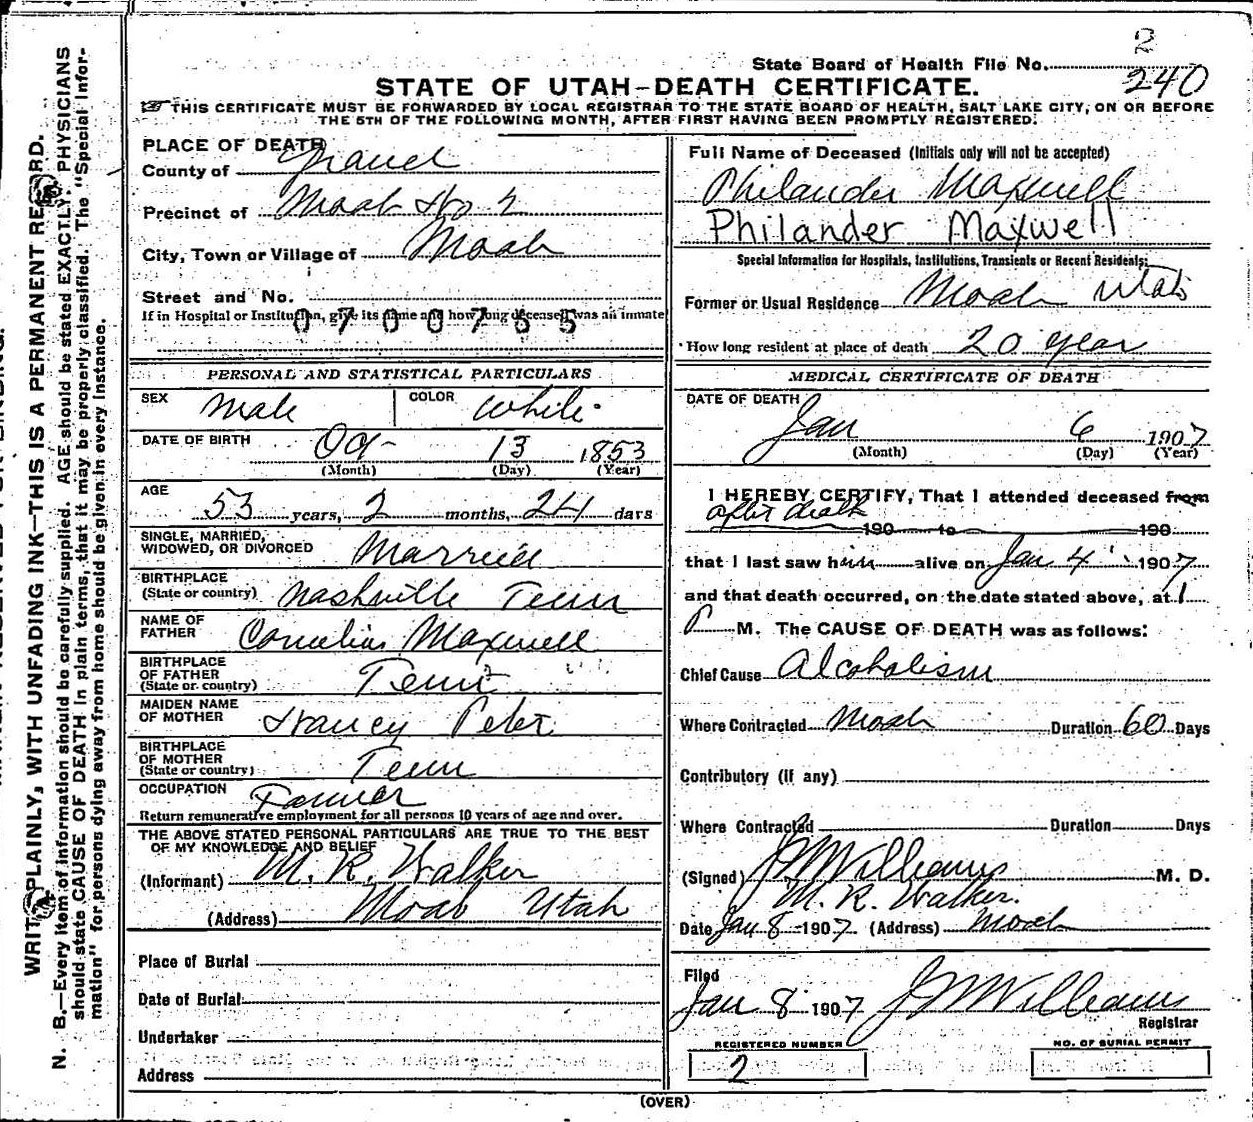 2
State Board of Health File No. 240
STATE OF UTAH-DEATH CERTIFICATE.
THIS CERTIFICATE MUST BE FORWARDED BY LOCAL REGISTRAR TO THE STATE BOARD OF HEALTH, SALT LAKE CITY, ON OR BEFORE
THE 5TH OF THE FOLLOWING MONTH, AFTER FIRST HAVING BEEN PROMPTLY REGISTERED.
WRITE PLAINLY, WITH UNFADING INK—THIS IS A PERMANENT RECORD.
N. B.—Every item of information should be carefully supplied. AGE should be stated EXACTLY. PHYSICIANS
should state CAUSE OF DEATH in plain terms, that it may be properly classified. The "Special Infor-
mation" for persons dying away from home should be given in every instance.
PLACE OF DEATH
County of Grand
Precinct of Moab No 2
City, Town or Village of Moab
Street and No.
If in Hospital or Institution, give its name and how long deceased was an inmate
0700765
PERSONAL AND STATISTICAL PARTICULARS
SEX Male COLOR White
DATE OF BIRTH Oct 13 1853
(Month) (Day) (Year)
AGE
53 years, 2 months, 24 days
SINGLE, MARRIED,
WIDOWED, OR DIVORCED Married
BIRTHPLACE
(State or country) Nashville Tenn
NAME OF
FATHER Cornelius Maxwell
BIRTHPLACE
OF FATHER
(State or country) Tenn
MAIDEN NAME
OF MOTHER Nancy Peter
BIRTHPLACE
OF MOTHER
(State or country) Tenn
OCCUPATION Farmer
Return remunerative employment for all persons 10 years of age and over.
THE ABOVE STATED PERSONAL PARTICULARS ARE TRUE TO THE BEST
OF MY KNOWLEDGE AND BELIEF
(Informant) M. R. Walker
(Address) Moab Utah
Place of Burial
Date of Burial
Undertaker
Address
Full Name of Deceased (Initials only will not be accepted)
Philander Maxwell
Philander Maxwell
Special Information for Hospitals, Institutions, Transients or Recent Residents:
Former or Usual Residence Moab Utah
How long resident at place of death 20 year
MEDICAL CERTIFICATE OF DEATH
DATE OF DEATH
Jan 6 1907
(Month) (Day) (Year)
I HEREBY CERTIFY, That I attended deceased from
after death 190 to 190
that I last saw him alive on Jan 4 1907
and that death occurred, on the date stated above, at 1
P M. The CAUSE OF DEATH was as follows:
Chief Cause Alcoholism
Where Contracted Moab Duration 60 Days
Contributory (if any)
Where Contracted Duration Days
(Signed) J W Williams M. D.
M. R. Walker.
Date Jan 8 1907. (Address) Moab
Filed
Jan 8 1907 J W Williams
Registrar
REGISTERED NUMBER NO. OF BURIAL PERMIT
2
(OVER)